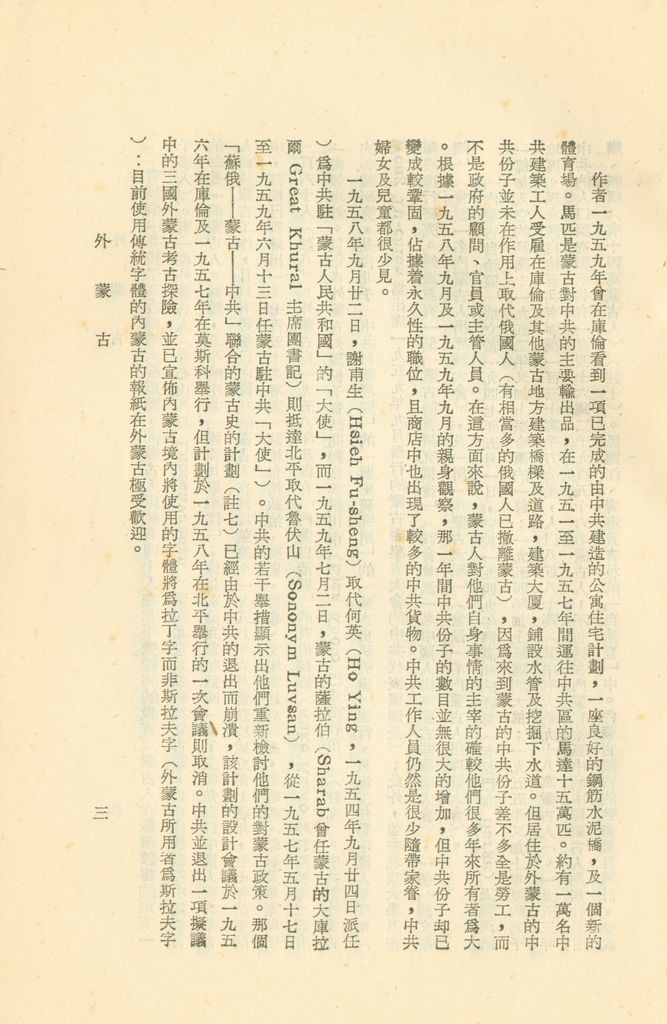 作者一九五九年會在庫倫看到一項已完成的由中共建造的公寓住宅計劃，一座良好的鋼筋水泥橋，及一個新的
體育場。馬匹是蒙古對中共的主要輸出品，在一九五一至一九五七年間運往中共區的馬達十五萬匹。約有一萬名中
共建築工人受雇在庫倫及其他蒙古地方建築橋樑及道路，建築大厦，鋪設水管及挖掘下水道。但居住於外蒙古的中
共份子並未在作用上取代俄國人（有相當多的俄國人已撤離蒙古），因爲來到蒙古的中共份子差不多全是勞工，而
不是政府的顧問、官員或主管人員。在這方面來說，蒙古人對他們自身事情的主宰的確較他們很多年來所有者爲大
。根據一九五八年九月及一九五九年九月的親身觀察，那一年間中共份子的數目並無很大的增加，但中共份子却已
變成較鞏固，佔據着永久性的職位，且商店中也出現了較多的中共貨物。中共工作人員仍然是很少隨帶家眷，中共
婦女及兒童都很少見。
一九五八年九月廿二日，謝甫生（Hsieh Fu-sheng）取代何英（Ho Ying，一九五四年九月廿四日派任
）爲中共駐「蒙古人民共和國」的「大使」，而一九五九年七月二日，蒙古的薩拉伯（Sharab曾任蒙古的大庫拉
爾 Great Khural 主席團書記）則抵達北平取代魯伏山（Sononym Luvsan），從一九五七年五月十七日
至一九五九年六月十三日任蒙古駐中共「大使」）。中共的若干舉措顯示出他們重新檢討他們的對蒙古政策。那個
「蘇俄——蒙古——中共」聯合的蒙古史的計劃（註七）已經由於中共的退出而崩潰，該計劃的設計會議於一九五
六年在庫倫及一九五七年在莫斯科舉行，但計劃於一九五八年在北平舉行的一次會議則取消。中共並退出一項擬議
中的三國外蒙古考古探險，並已宣佈內蒙古境內將使用的字體將爲拉丁字而非斯拉夫字（外蒙古所用者爲斯拉夫字
）：目前使用傳統字體的內蒙古的報紙在外蒙古極受歡迎。
外蒙古
三